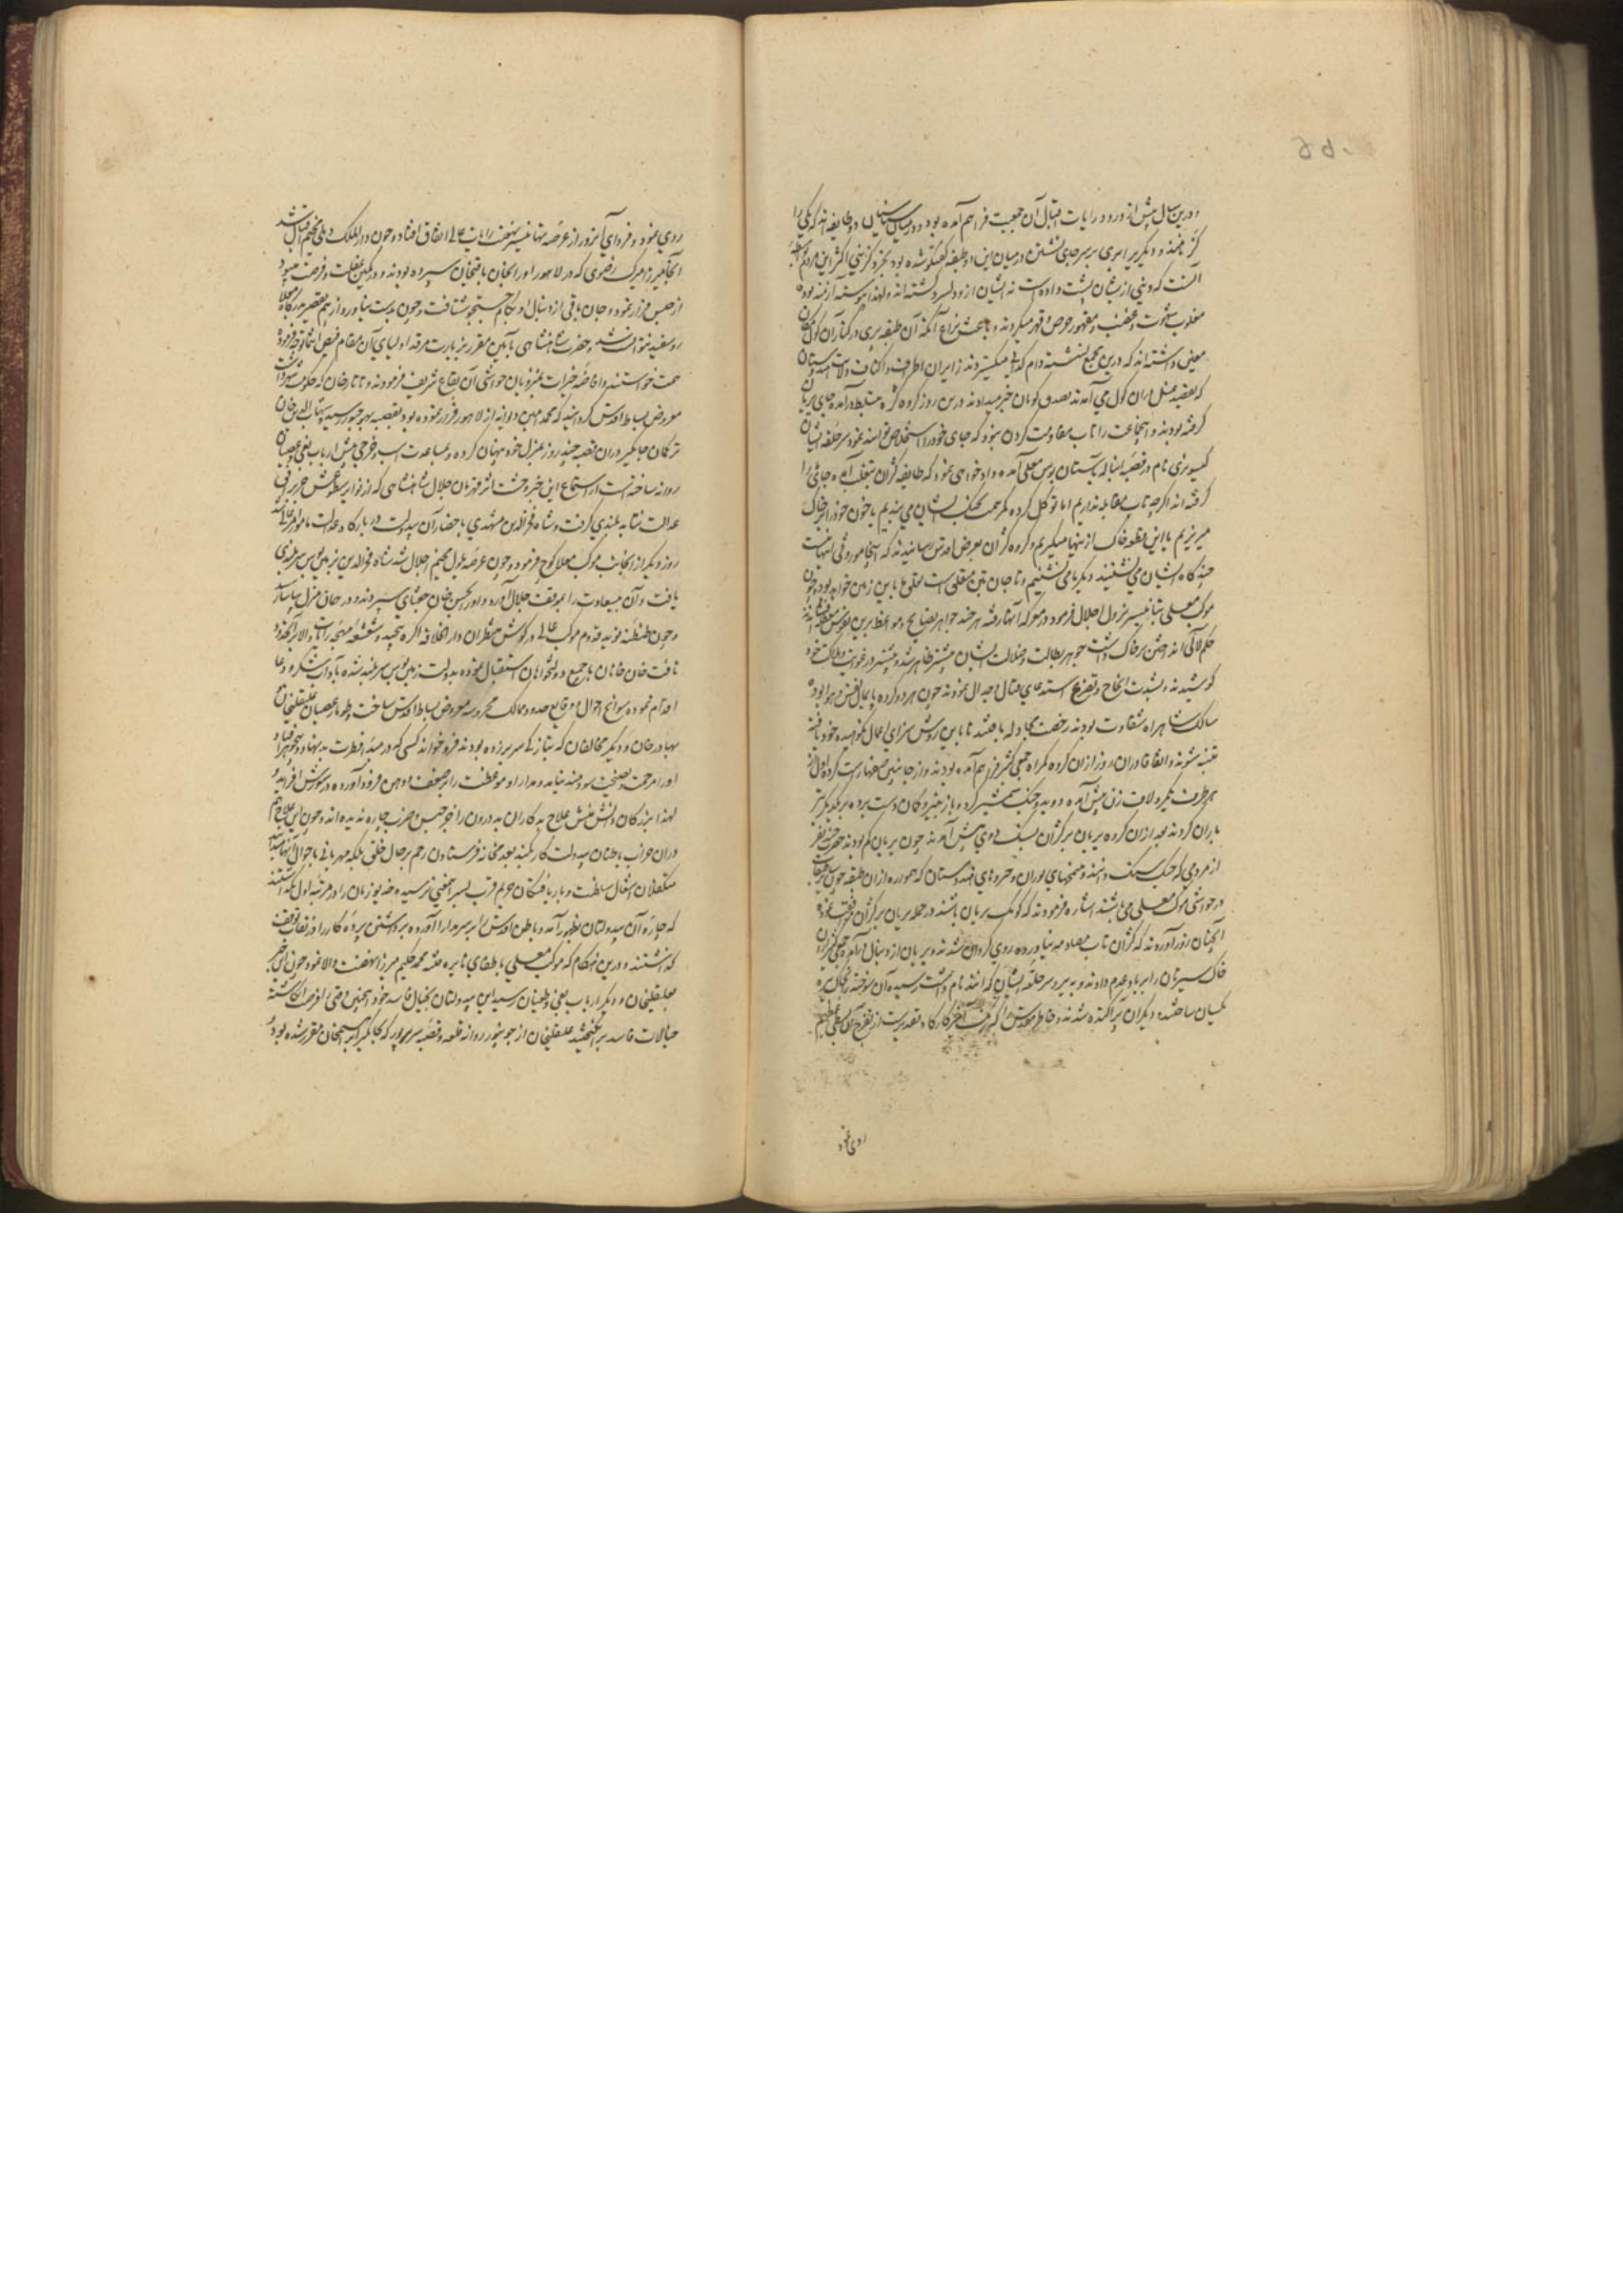 و درین سال پیش از ورود رایات اقبال آن جمعیت فراهم آمده بود و در میان سناسیان دو طایفه اند که یکی را
کر نامند و دیگری را پری بر سر جای نشستن در میان این دو طبقه گفتگو شده بود
آنست که دنیی از ایشان پشت داده است نه ایشان از و دلسرد گشته اند ولهذا پیوسته
مغلوب شهوت و غضب و مقهور حرص و قهر میگردند و باعث نزاع آنکه آن طبقه پری در کنار آن کول مکان
معین داشته اند که درین مجمع نشسته دام گدایی میگستردند زایران اطراف و اکناف ولایت هندوستان
که بقصد غسل در آن کول می آمدند تصدق گویان خیر میدادند درین روز گروه کر بتسلط درآمده جای پریان
گرفته بودند و این جماعت را تاب مقاومت کردن نبود که جای خود را استخلاص توانند نمود سر حلقه ایشان
کیسوپری نام در قصبه انباله بآستان بوس معلی آمده دادخواهی نمود که طایفه کران بتغلب آمده جای ما را
گرفته اند اگر چه تاب مقابله نداریم اما توکل کرده کمر همت بجنگ ایشان می بندیم یا خون خود را بر خاک
میریزیم یا این مظلوم خاک از اینها میگیریم و گروه کران بعرض اقدس رسانیدند که آنجا موروثی اینهاست
چندگاه ایشان می نشستند دیگر ما می نشینیم و تا جان بتن متعلق است تعلق ما باین زمین خواهد بود و چون
موکب معلی بتانیسر نزول اجلال فرمود در معرکه آنها رفته هر چند جواهر نصایح و مواعظ
حکم لآلی انداختن بر خاک داشت جوهر بطالت و ضلالت ایشان بیشتر ظاهر شد و بیشتر در غوایت و هلاکت خود
کوشیدند و بشدت الحاح و تضرع استدعای قتال و جدال نمودند چون هر دو گروه پایمال نفس و هوا بوده
سالک شاهراه شقاوت بودند رخصت مجادله یافتند تا باین روش سزای اعمال نکوهیده خود یافته
متنبه شوند و اتفاقا در آن روز از آن گروه گمراه جمعی کثیر فراهم آمده بودند و از جانبین صفها راست کرده اول از
هر طرف یک مرد لاف زن پیش آمده دویده جنگ شمشیر کرد و باز بتیر و کمان دست برده بر یکدیگر تیر
باران کردند بعد از آن گروه پریان بر کران بسنگ دویی پیش آمدند چون پریان کم بودند حضرت چند نفر
از مردمی که جنگ سنگ دانند و پنجهای توران و حیروهای هندوستان که همواره از آن طبقه خون
در حواشی موکب معلی می باشند اشاره فرمودند که کومک پریان باشند در حمله پریان بر کران موافقت نموده
آنچنان زور آوردند که کران تاب صدمه نیاورده روی گردان شدند و پریان از دنبال درآمده جمعی کثیر از آن
خاکساران را بر باد عدم دادند و به پیر و سر حلقه ایشان که انند نام داشت رسیده آن سوخته
یکسان ساختند و دیگران پراکنده شدند و خاطر مقدس
روی نمود
روی نمود و فردای آن روز از عرصه تهانیسر نهضت رایات عالی اتفاق افتاد و چون دار الملک دهلی مخیم اقبال شد
آنجا میرزا میرک رضوی که در لاهور او را بجان باقیخان سپرده بودند و در کمین غفلت و فرصت میبود
از حبس فرار نمود و جان باقی از دنبال او بگام جستجو شتافت و چون بدست نیاورد از بیم تقصیر بدرگاه معلا
رو سفید نتوانست شد و حضرت شاهنشاهی بآئین مقرر بزیارت مرقد اولیای آن مقام فیض انتما توجه فرموده
همت خواستند و افاضه خیرات بمنزویان حواشی آن بقاع شریف فرمودند و تاتار خان که حکومت شهر داشت
معروض بساط اقدس گردانید که محمد امین دیوانه از لاهور فرار نموده بود بقصبه بهوجپور رسید شهاب الدین خان
ترکمان جاگیردار آن قصبه چند روز بمنزل خود پنهان کرده و بمساعدت اسب و خرجی پیش ارباب بغی و عصیان
روانه ساخته است از استماع این خبر وحشت اثر قهرمان جلال شاهنشاهی که از نوایر سطوتش
عدالت نشا به بلندی گرفت و شاه فخرالدین مشهدی باحضار آن بیدولت در بارگاه عدالت مامور
روز دیگر از آنجانب موکب معلا کوچ فرمود و چون عرصه پلول مخیم اجلال شد شاه فخرالدین بزمین بوس سربلندی
یافت و آن بیسعادت را بموقف جلال آورد و او را بحسین خان سپردند و در همان منزل بیاسا رسید
و چون طنطنه نوید قدوم موکب عالی در گوش منتظران دار الخلافه آگره پیچید و شعشعه ماهچه رایات والا بر آنحدود
تافت خان خانان با جمیع دولتخواهان استقبال نموده بدولت زمین بوس سربلند شده بآداب شکر و دعا
اقدام نموده سوانح احوال و وقایع حدود ممالک محروسه معروض بساط اقدس ساخت و طومار عصیان علیقلیخان
بهادر خان و دیگر مخالفان که بتازگی سر بر زده بودند فرو خواند کسی که در مبدا فطرت بدنهاد و تیره جوهر افتاد
او را مرحمت و نصیحت سودمند نیاید و مدارا و موعظت را بر ضعف و وهن فرود آورده در شورش افزاید
لهذا بزرگان دانش منش علاج بدکاران بد درون را غیر حبس و ضرب چاره ندیده اند و چون این علاج هم
در آن خراب باطنان بیدولت کار نکند بعدم خانه فرستادن رحم بر حال خلق بلکه مهربانی باحوال آنها میدانند
متکفلان اشغال سلطنت و باریافتگان حریم قرب بسر این معنی نرسیده خدیو زمان را در مرتبه اول نگذاشتند
که چاره آن بیدولتان بظهور آمدی و باطن اقدس را بر سر مدارا آورده برداشتن پرده کار را در نقاب توقف
گذاشتند و درین هنگام که موکب معلی باطفای نایره فتنه محمد حکیم میرزا نهضت والا نمود چون این خبر
بعلیقلیخان و دیگر ارباب بغی و طغیان رسید این بیدولتان بخیال فاسد خود اینچنین وقتی را فرصت انگاشته
خیالات فاسد برانگیختند علیقلیخان از جونپور روانه قلعه و قصبه سرهرپور که بجاگیر ابراهیم خان مقرر شده بود